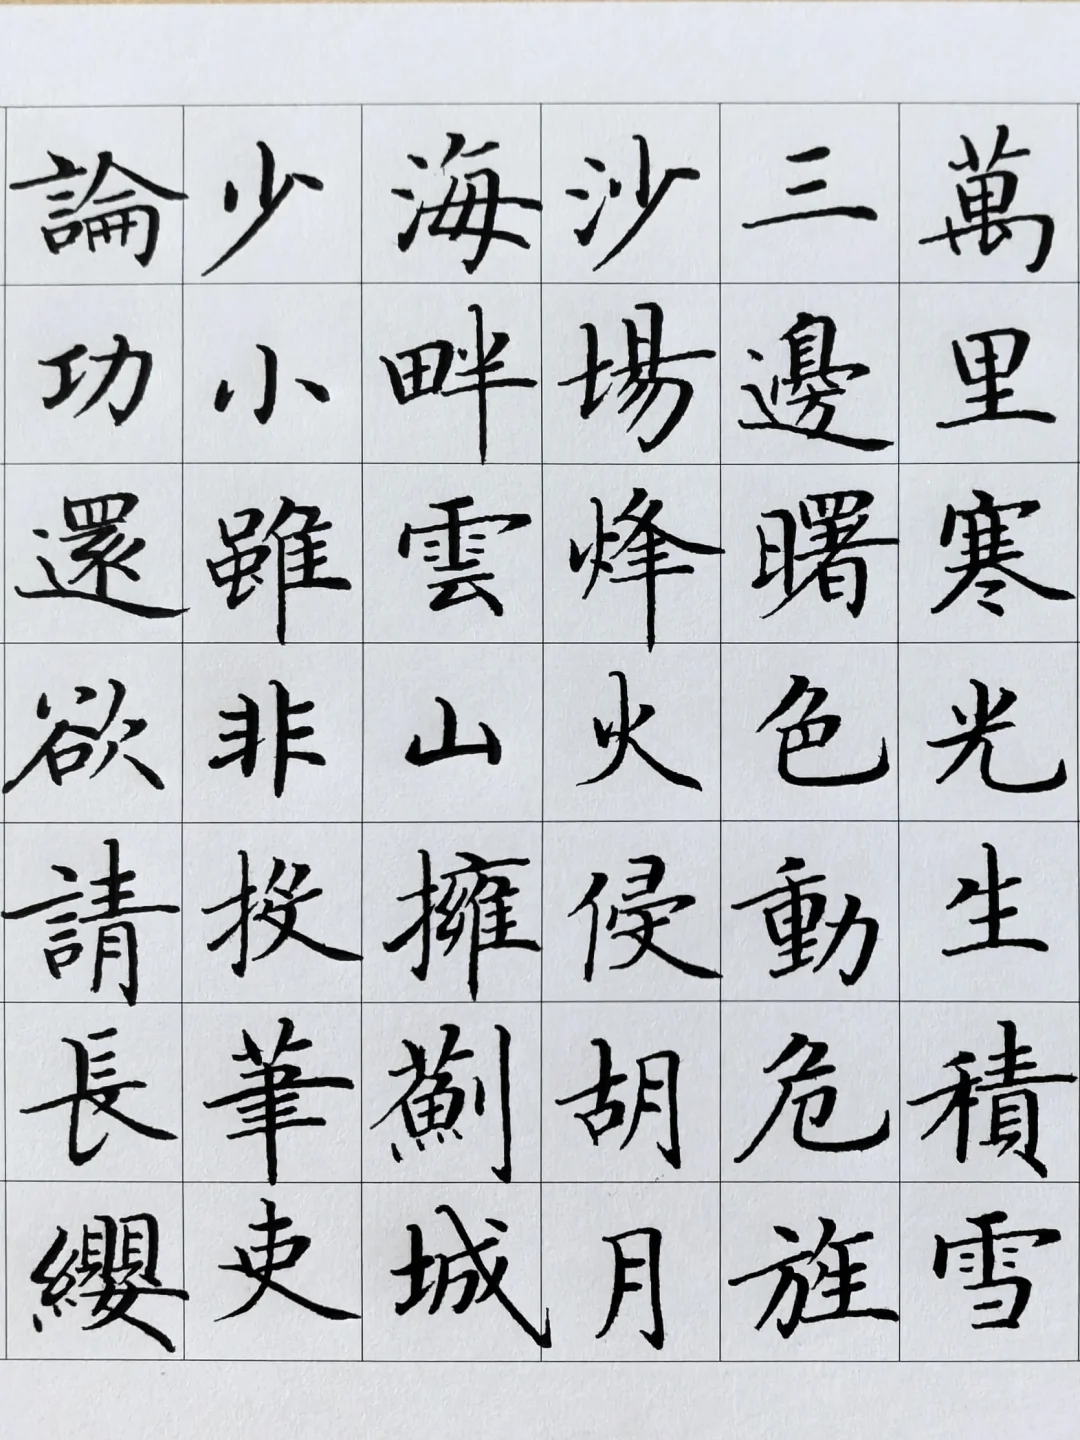 萬里寒光生積雪
三邊曙色動危旌
沙場烽火侵胡月
海畔雲山擁薊城
少小雖非投筆吏
論功還欲請長纓